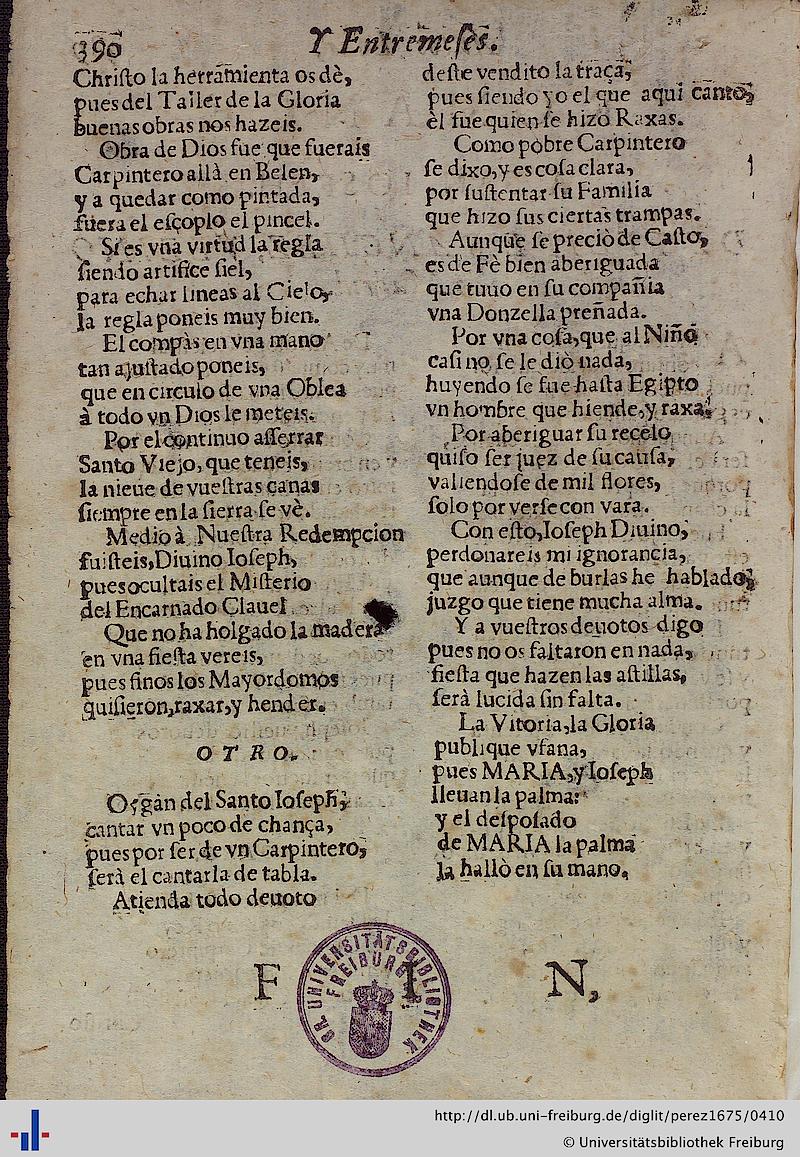 390
Y Entremeſes.
Chriſto la herramienta os dè,
pues del Taller de la Gloria
buenas obras nos hazeis.
Obra de Dios fue que fuerais
Carpintero allà en Belen,
y a quedar como pintada,
fuera el eſcoplo el pincel.
Si es vna virtud la regla
ſiendo artifice fiel,
para echar lineas al Cielo,
la regla poneis muy bien.
El compàs en vna mano
tan ajuſtado poneis,
que en circulo de vna Oblea
à todo vn Dios le meteis.
Por el continuo aſſerrar
Santo Viejo, que teneis,
la nieue de vueſtras canas
ſiempre en la ſierra ſe vè.
Medio à Nueſtra Redempcion
fuiſteis, Diuino Ioſeph,
pues ocultais el Miſterio
del Encarnado Clauel
Que no ha holgado la madera
en vna fieſta vereis,
pues finos los Mayordomos
quiſieron, raxar, y hender.
OTRO.
Oygan del Santo Ioſeph,
cantar vn poco de chança,
pues por ſer de vn Carpintero,
ſerà el cantarla de tabla.
Atienda todo deuoto
deſte vendito la traça,
pues ſiendo yo el que aqui canto,
èl fue quien ſe hizo Raxas.
Como pobre Carpintero
ſe dixo, y es coſa clara,
por ſuſtentar ſu Familia
que hizo ſus ciertas trampas.
Aunque ſe preciò de Caſto,
es de Fè bien aberiguada
que tuuo en ſu compañia
vna Donzella preñada.
Por vna coſa, que al Niño
caſi no ſe le diò nada,
huyendo ſe fue haſta Egipto
vn hombre que hiende, y raxa.
Por aberiguar ſu recelo
quiſo ſer juez de ſu cauſa,
valiendoſe de mil flores,
ſolo por verſe con vara.
Con eſto, Ioſeph Diuino,
perdonareis mi ignorancia,
que aunque de burlas he hablado,
juzgo que tiene mucha alma.
Y a vueſtros deuotos digo
pues no os faltaron en nada,
fieſta que hazen las aſtillas,
ſerà lucida ſin falta.
La Vitoria, la Gloria
publique vfana,
pues MARIA, y Ioſeph
lleuan la palma:
y el deſpoſado
de MARIA la palma
la hallò en ſu mano.
F I N,
UNIVERSITÄTSBIBLIOTHEK
FREIBURG
http://dl.ub.uni-freiburg.de/diglit/perez1675/0410
© Universitätsbibliothek Freiburg